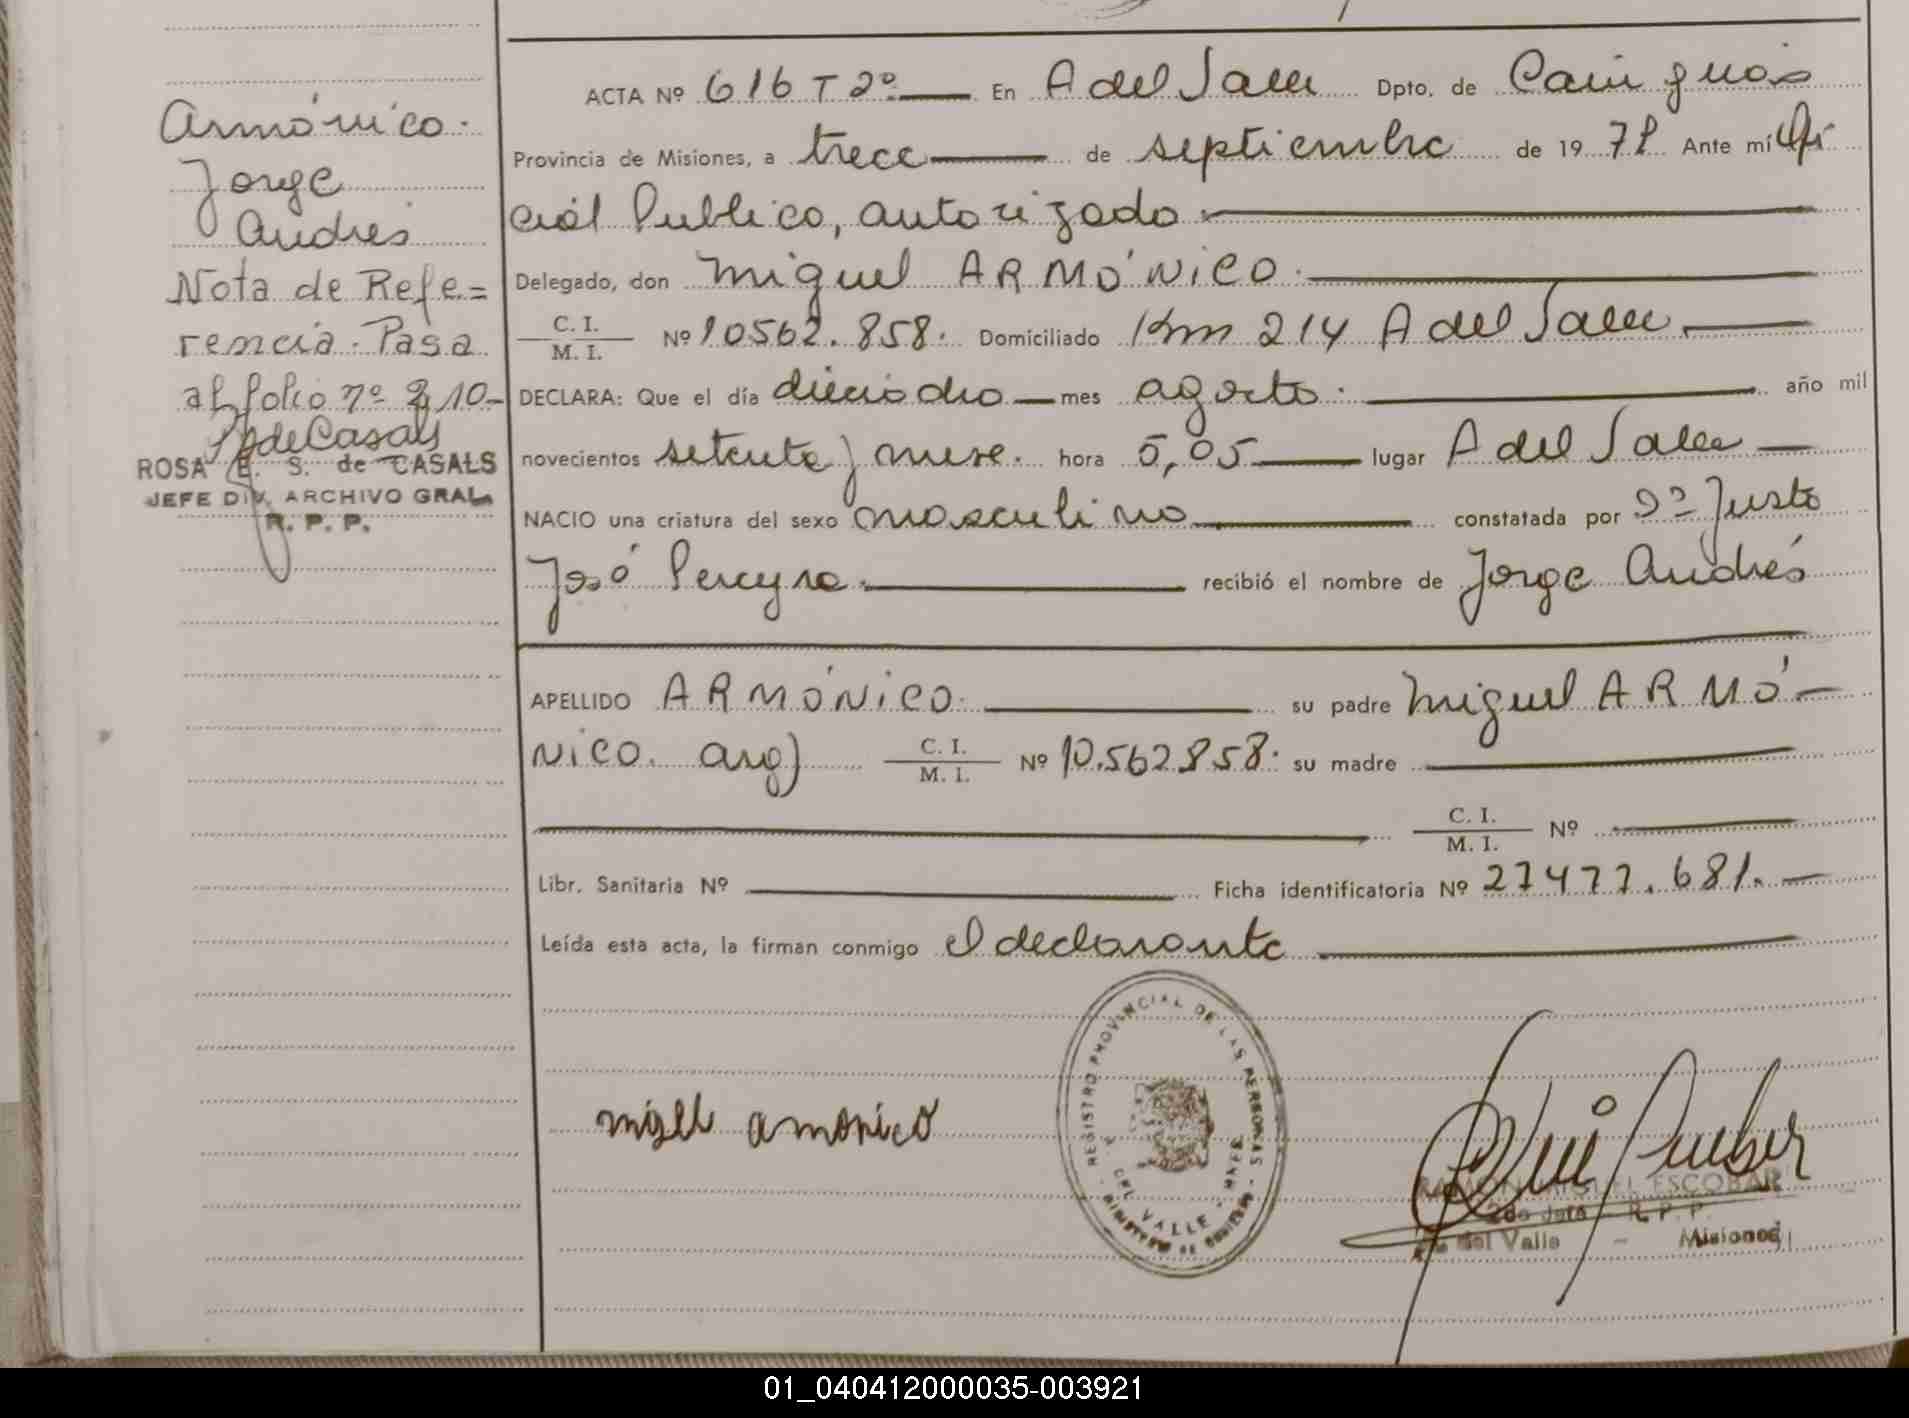 Armónico.
Jorge
Andrés
Nota de Refe=
rencia. Pasa
al folio nº 210-
ROSA E. S. de CASALS
JEFE DIV. ARCHIVO GRAL.
R. P. P.
ACTA Nº 616 T 2º En A del Valle Dpto. de Cainguás
Provincia de Misiones, a trece de septiembre de 19 79 Ante mí Ofi
cial Publico, autorizado
Delegado, don Miguel ARMÓNICO.
C. I. / M. I. Nº 10562.858. Domiciliado Km 214 A del Valle.
DECLARA: Que el día dieciocho mes agosto. año mil
novecientos setenta y nueve. hora 5,05 lugar A del Valle
NACIO una criatura del sexo masculino constatada por Justo
José Pereyra. recibió el nombre de Jorge Andrés
APELLIDO ARMÓNICO. su padre Miguel ARMÓ-
NICO. arg) C. I. / M. I. Nº 10.562.858. su madre
C. I. / M. I. Nº
Libr. Sanitaria Nº Ficha identificatoria Nº 27477.681.
Leída esta acta, la firman conmigo el declarante
REGISTRO PROVINCIAL DE LAS PERSONAS
migel amonico
RAMON MIGUEL ESCOBAR
2do Jefe - R. P. P.
del Valle - Misiones
01_040412000035-003921